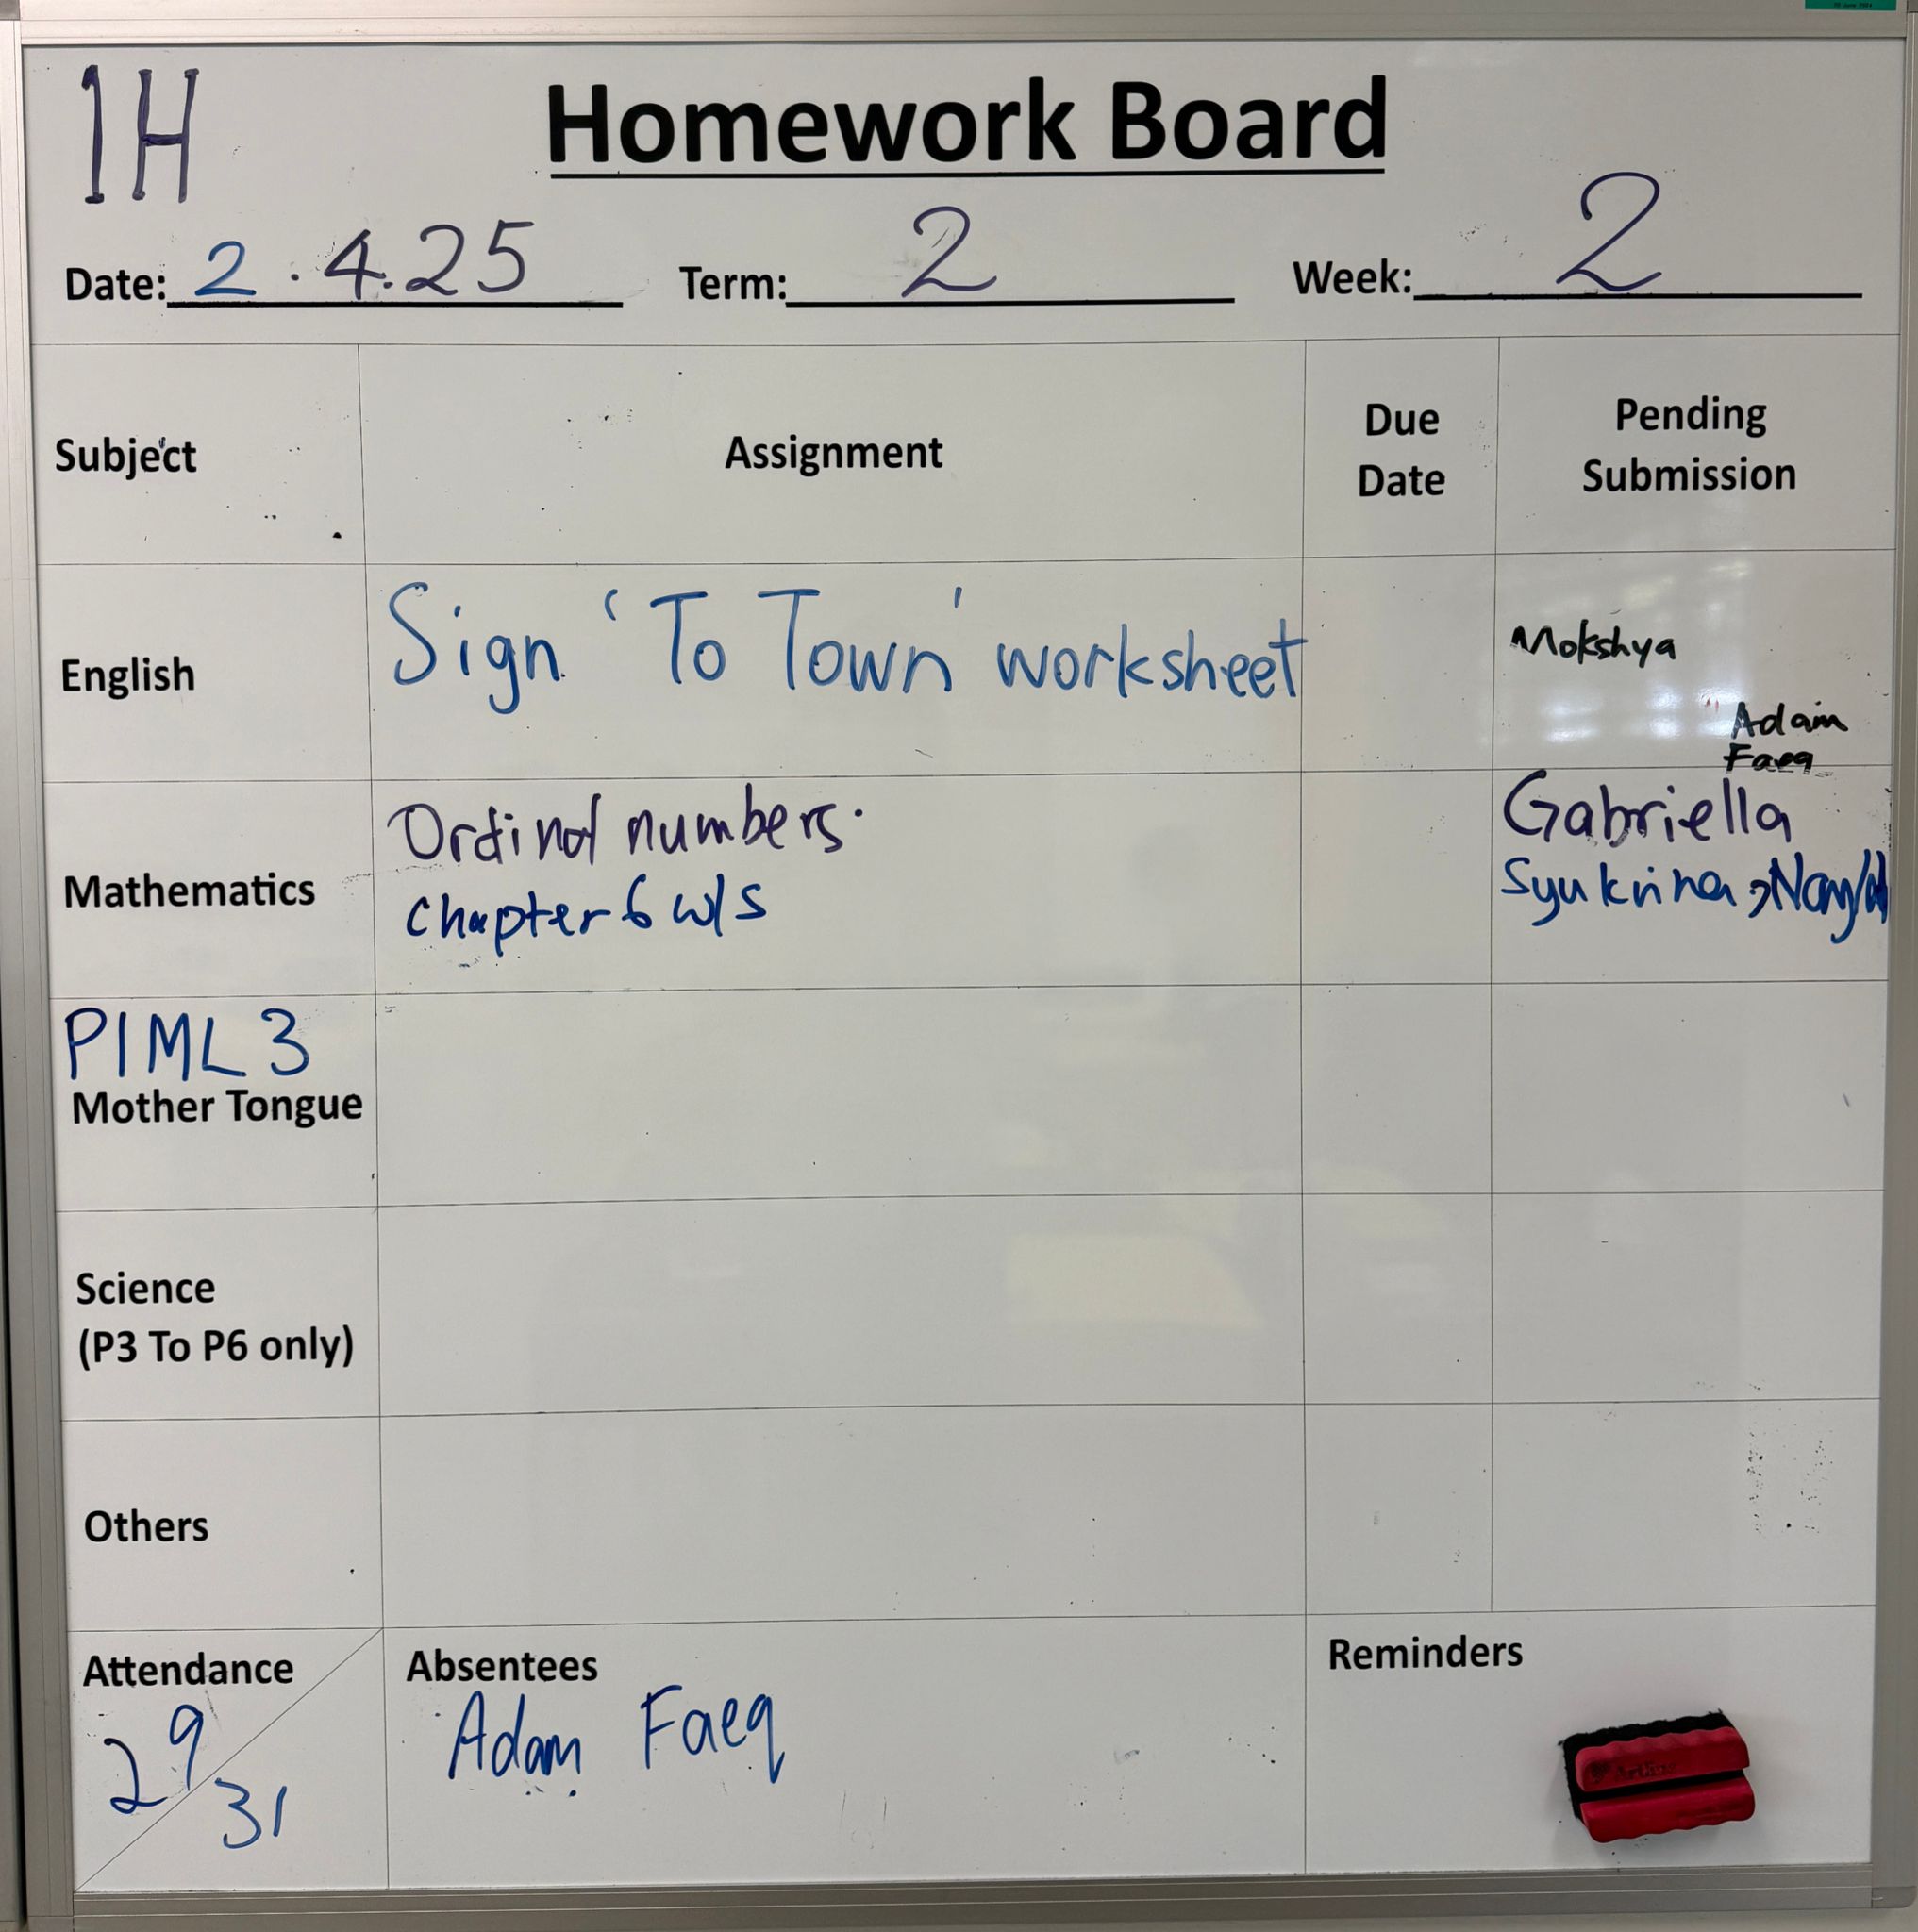 1H
Homework Board
Date: 2.4.25 Term: 2 Week: 2
Subject Assignment Due Date Pending Submission
English Sign 'To Town' worksheet Mokshya
Adam
Faeq
Mathematics
Ordinal numbers.
Chapter 6 w/s
Gabriella
Syukrina,
P1ML3
Mother Tongue
Science
(P3 To P6 only)
Others
Attendance
29/31
Absentees
Adam Faeq
Reminders